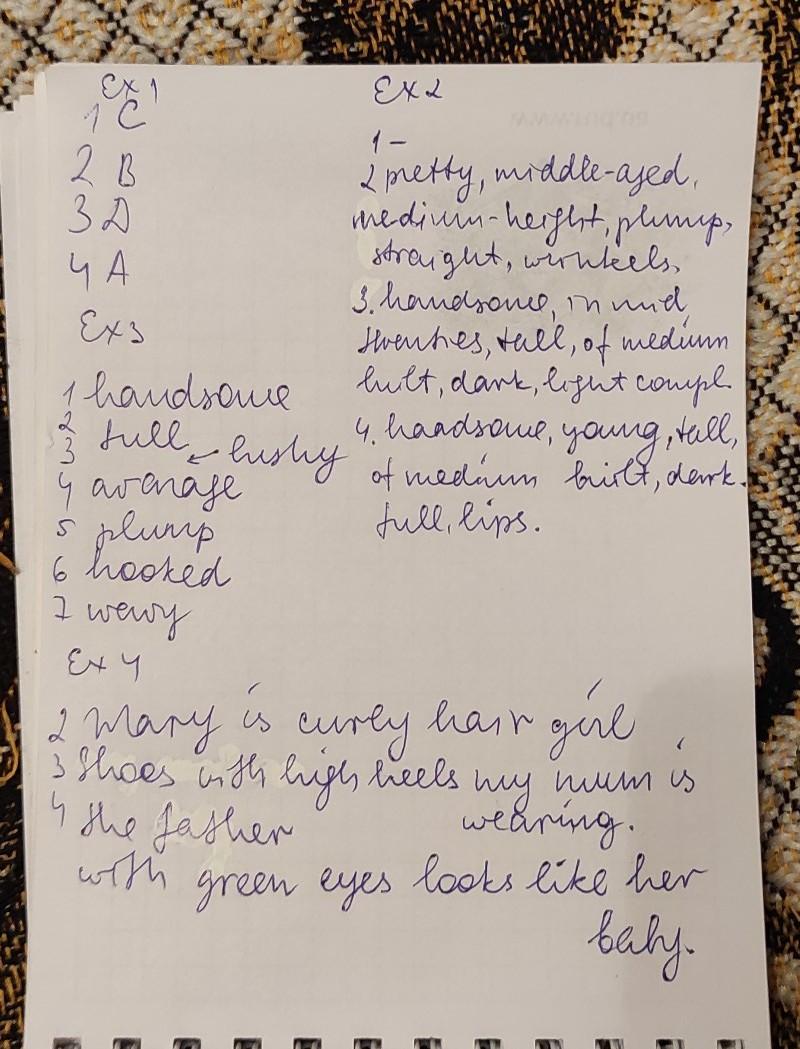 Ex 1
1 C
2 B
3 D
4 A
Ex3
1 handsome
2
3 full ← bushy
4 avarage
5 plump
6 hooked
7 wewy
Ex 2
1 –
2 pretty, middle-aged,
medium-height, plump,
straight, wrinkels,
3. handsome, in mid
twenties, tall, of medium
bult, dark, light compl.
4. handsome, young, tall,
of medium built, dark.
full, lips.
Ex 4
2 Mary is curly hair girl
3 Shoes with high heels my mum is
wearing.
4 the father
with green eyes looks like her
baby.